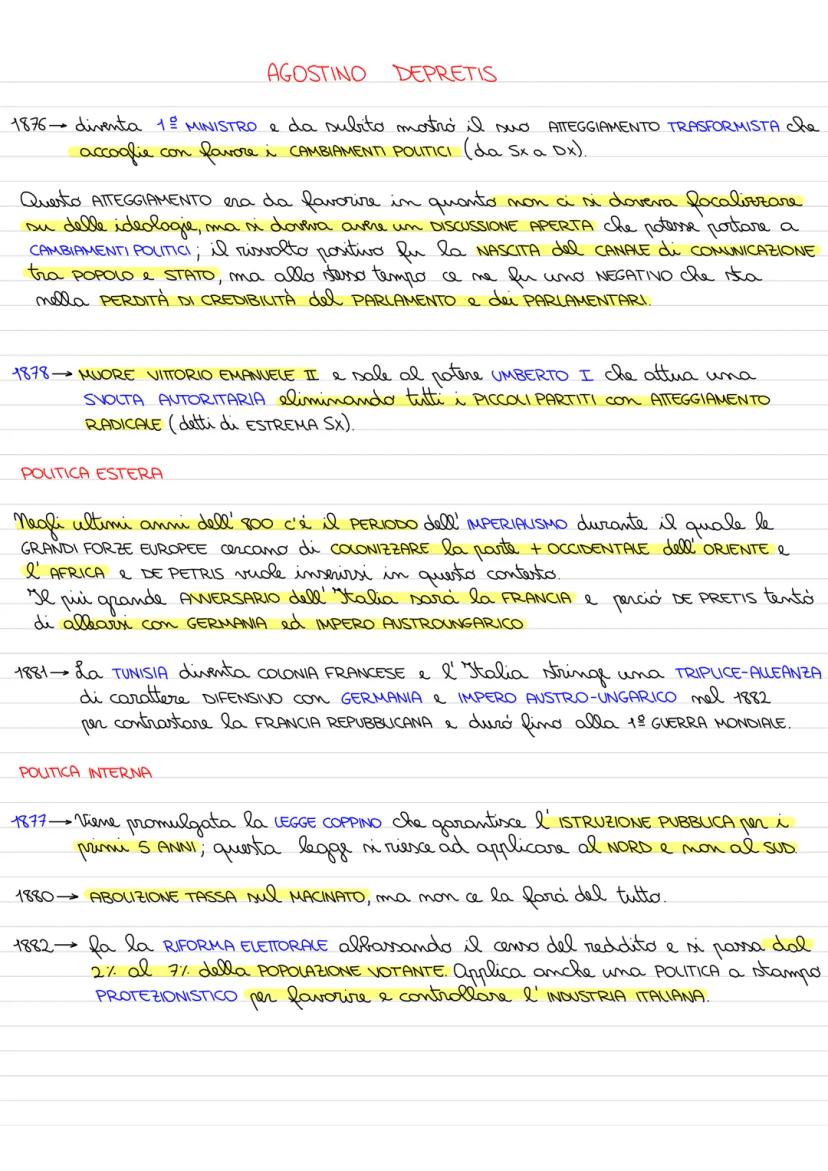 AGOSTINO DEPRETIS
1876→ diventa 1º MINISTRO e da subito mostrò il suo ATTEGGIAMENTO TRASFORMISTA che
accoglie con favore i CAMBIAMENTI POLITICI (da Sx a Dx).
Questo ATTEGGIAMENTO era da favorire in quanto non ci si doveva focalizzare
su delle ideologie, ma si doveva avere un DISCUSSIONE APERTA che potesse portare a
CAMBIAMENTI POLITICI; il risvolto positivo fu la NASCITA del CANALE di COMUNICAZIONE
tra POPOLO e STATO, ma allo stesso tempo ce ne fu uno NEGATIVO che sta
nella PERDITÀ DI CREDIBILITÀ del PARLAMENTO e dei PARLAMENTARI.
1878→ MUORE VITTORIO EMANUELE II e sale al potere UMBERTO I che attua una
SVOLTA AUTORITARIA eliminando tutti i PICCOLI PARTITI con ATTEGGIAMENTO
RADICALE (detti di ESTREMA Sx).
POLITICA ESTERA
Negli ultimi anni dell'800 c'è il PERIODO dell'IMPERIALISMO durante il quale le
GRANDI FORZE EUROPEE cercano di COLONIZZARE la parte + OCCIDENTALE dell'ORIENTE e
l'AFRICA e DE PETRIS vuole inserirsi in questo contesto.
Il più grande AVVERSARIO dell'Italia sarà la FRANCIA e perciò DE PRETIS tentò
di allearsi con GERMANIA ed IMPERO AUSTROUNGARICO
1881→ La TUNISIA diventa COLONIA FRANCESE e l'Italia stringe una TRIPLICE-ALLEANZA
di carattere DIFENSIVO con GERMANIA e IMPERO AUSTRO-UNGARICO nel 1882
per contrastare la FRANCIA REPUBBLICANA e durò fino alla 1º GUERRA MONDIALE.
POLITICA INTERNA
1877→ Viene promulgata la LEGGE COPPINO che garantisce l'ISTRUZIONE PUBBLICA per i
primi 5 ANNI; questa legge si riesce ad applicare al NORD e non al SUD.
1880→ ABOLIZIONE TASSA sul MACINATO, ma non ce la farà del tutto.
1882→ fa la RIFORMA ELETTORALE abbassando il censo del reddito e si passa dal
2% al 7% della POPOLAZIONE VOTANTE. Applica anche una POLITICA a stampo
PROTEZIONISTICO per favorire e controllare l'INDUSTRIA ITALIANA.